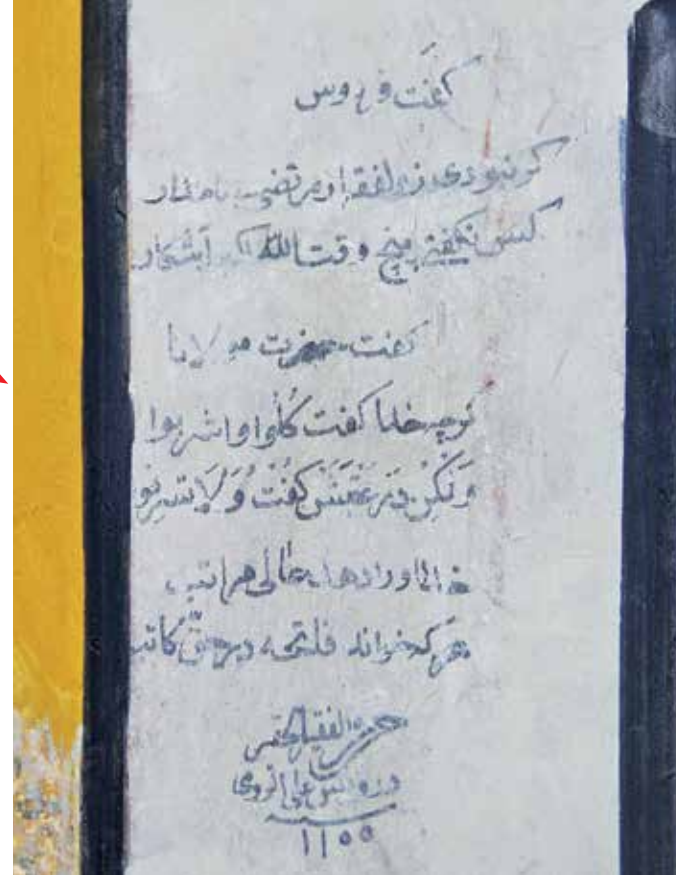 گفت فردوس
گر نبودی ذوالفقار مرتضی نامدار
کس نگفتی پنج وقت الله اکبر آشکار
گفت حضرت مولانا
گرچه خدا گفت كُلُوا واشربوا
وَلَكِن در عَقَبَش گفت وَلَا تسرفوا
اورا دهاد عالی مراتب
هرکه خواند فاتحه در حق کاتب
حرره الفقیر الحقیر
علی الرومی
١١٥٥